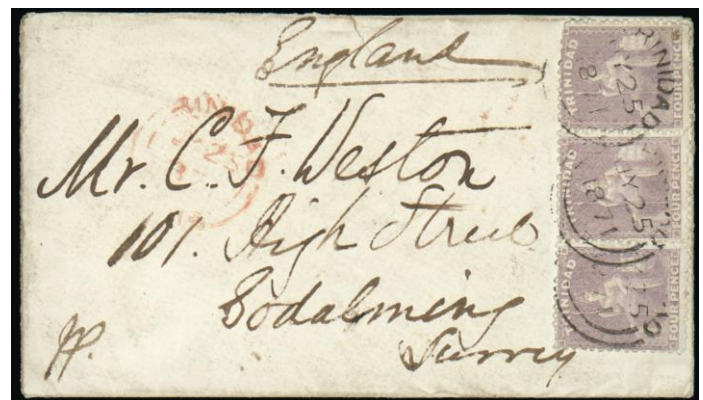 England
Mr. C. F. Weston
101. High Street
Godalming
Surrey
TRINIDAD
FOUR PENCE
TRINIDAD
FOUR PENCE
TRINIDAD
FOUR PENCE
TRINIDAD
25
1871